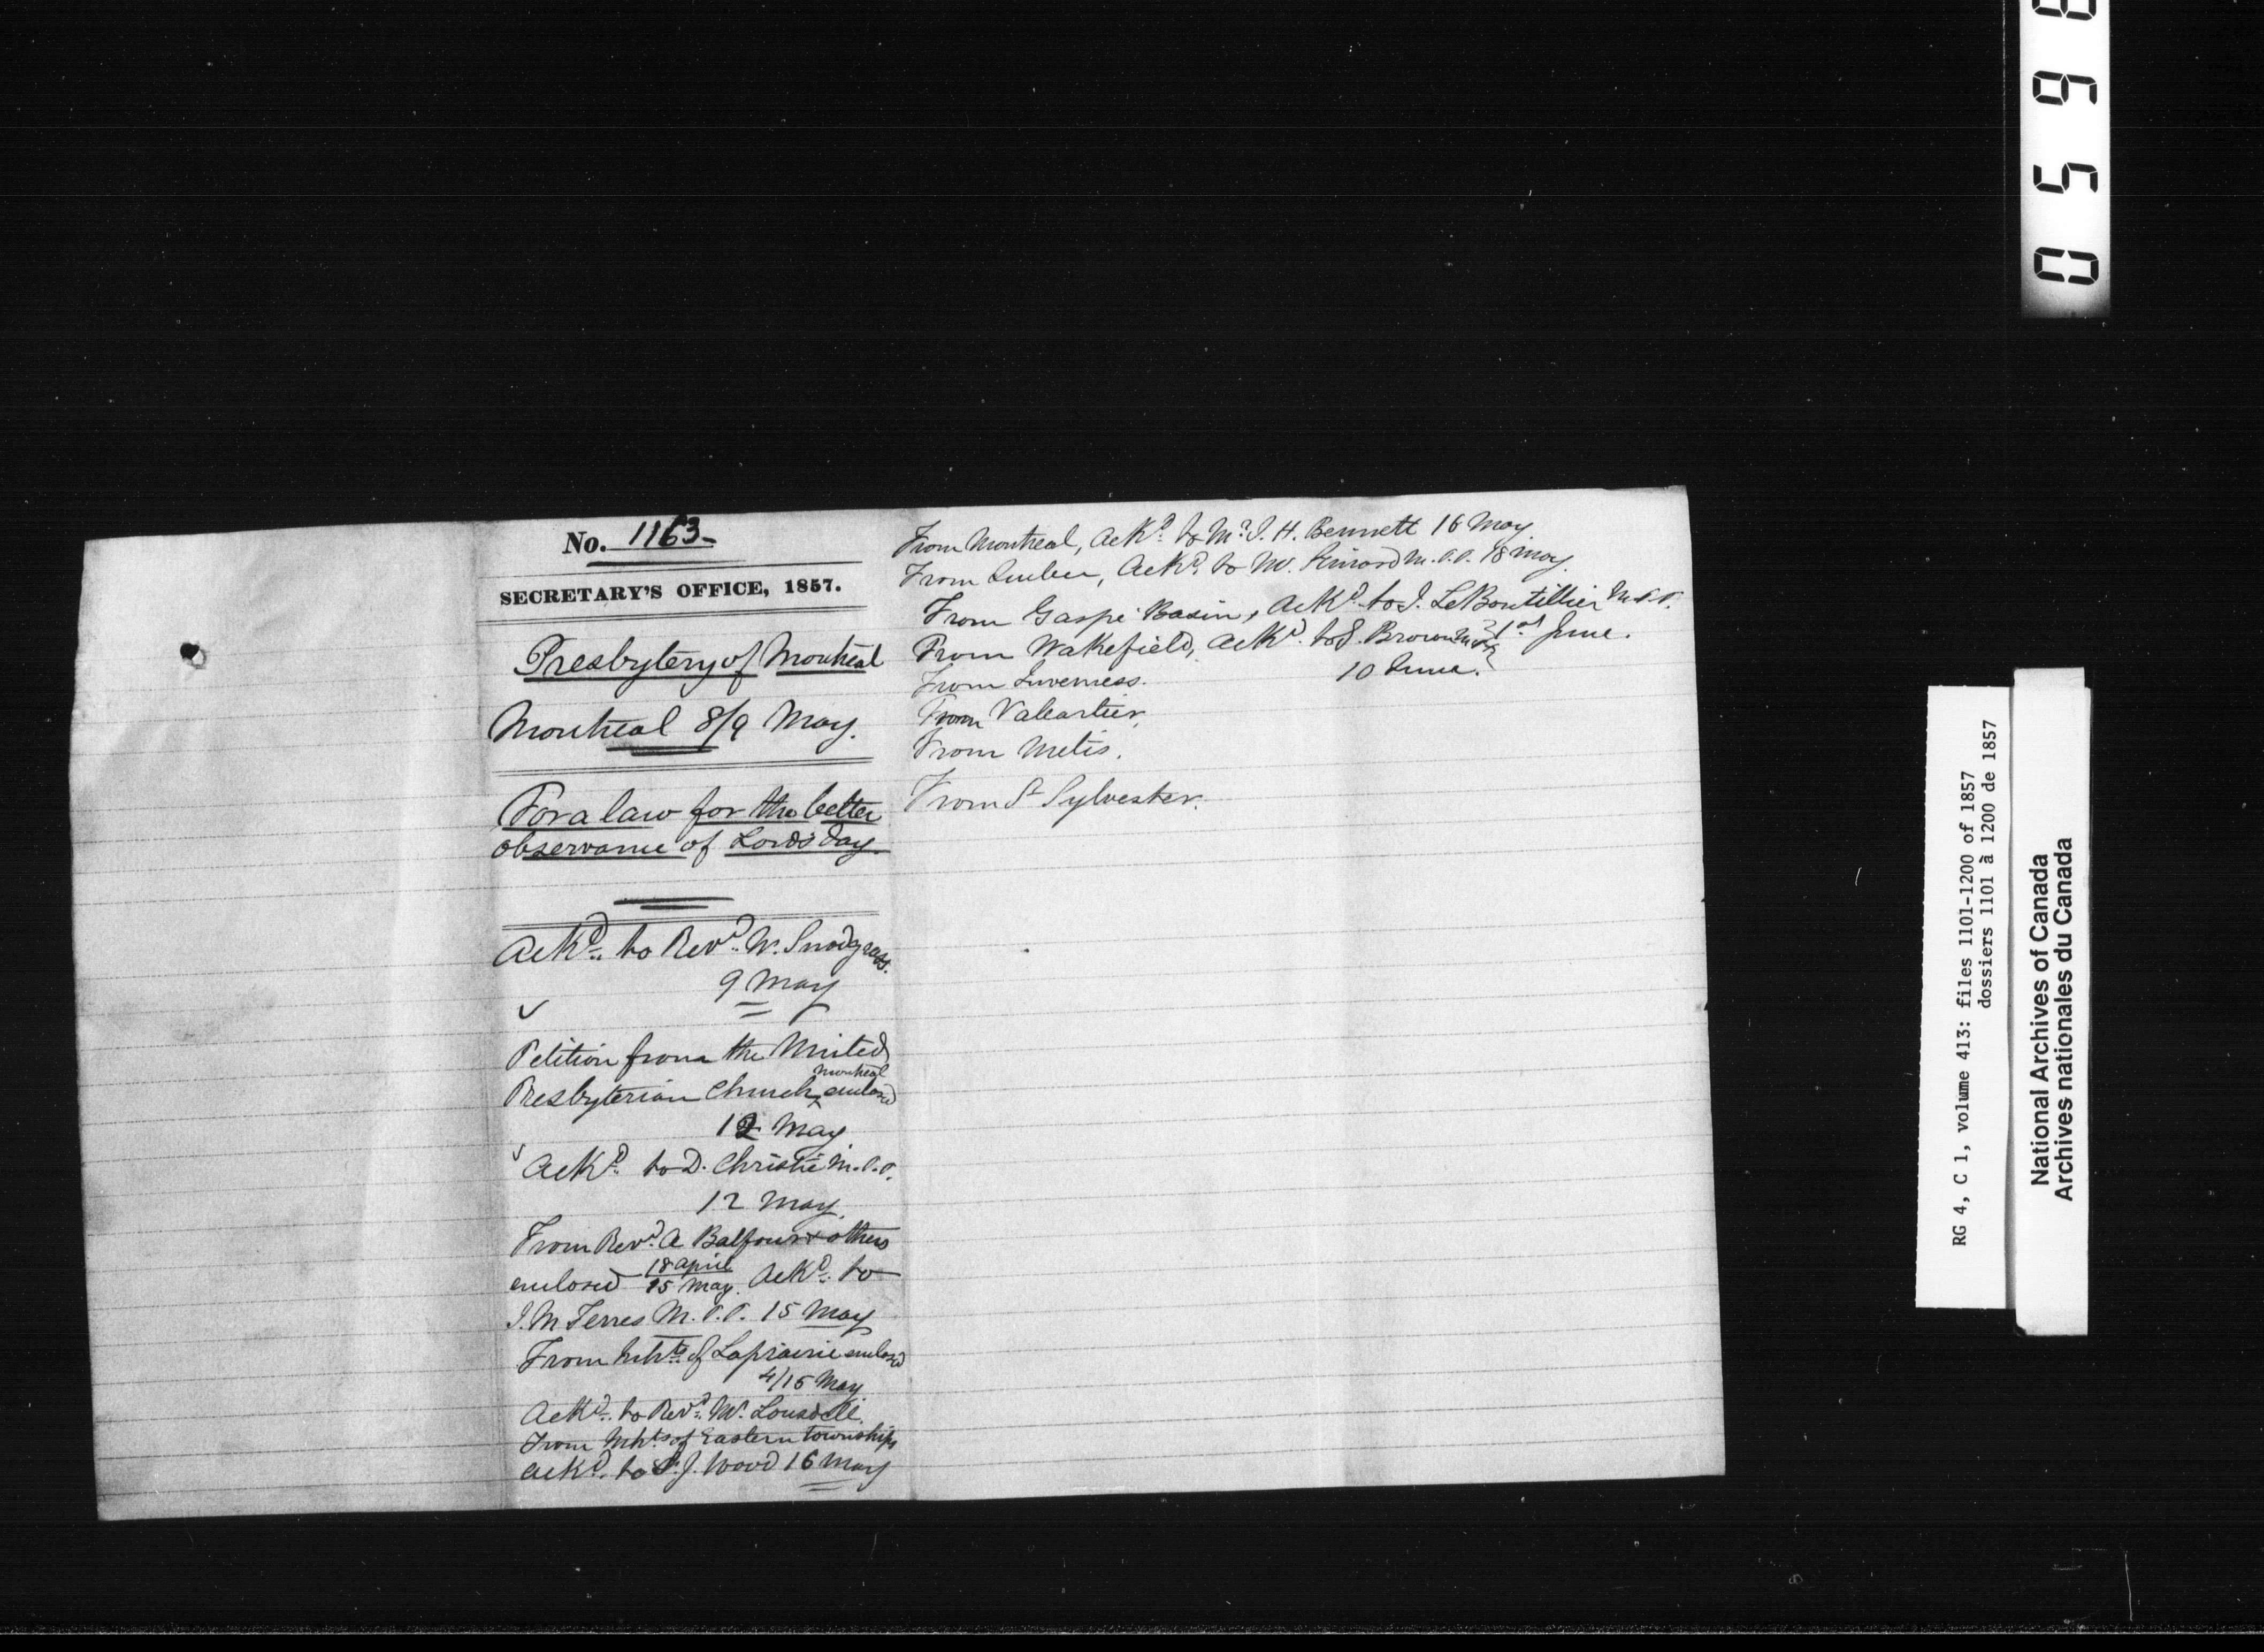 No. 1163-
SECRETARY'S OFFICE, 1857.
Presbytery of Montreal
Montreal 8/9 May.
For a law for the better
observance of Lord's day.
Ackd. to Revd. W. Snodgrass.
9 May
Petition from the United
Presbyterian Church Montreal enclosed
12 May
Ackd. to D. Christie M.P.P.
12 May.
From Revd. A Balfour & others
enclosed 18 april / 15 May. Ackd. to
J. M Ferres M.P.P. 15 May
From Inhts. of Laprairie enclosed
4/15 May
Ackd. to Revd. W. Lonsdell.
From Inhts of Eastern townships
Ackd. to S. J. Wood 16 May
From Montreal, Ackd. to Mr. J. H. Bennett 16 May
From Quebec, Ackd. to W. M.P.P. 18 May.
From Gaspé Basin, Ackd. to J. LeBoutillier M.P.P.
1st June.
From Wakefield, Ackd. to Brown
10 June.
From Inverness.
From Valcartier.
From Metis.
From St Sylvester.
0 5 9 8
RG 4, C 1, volume 413: files 1101-1200 of 1857
dossiers 1101 à 1200 de 1857
National Archives of Canada
Archives nationales du Canada